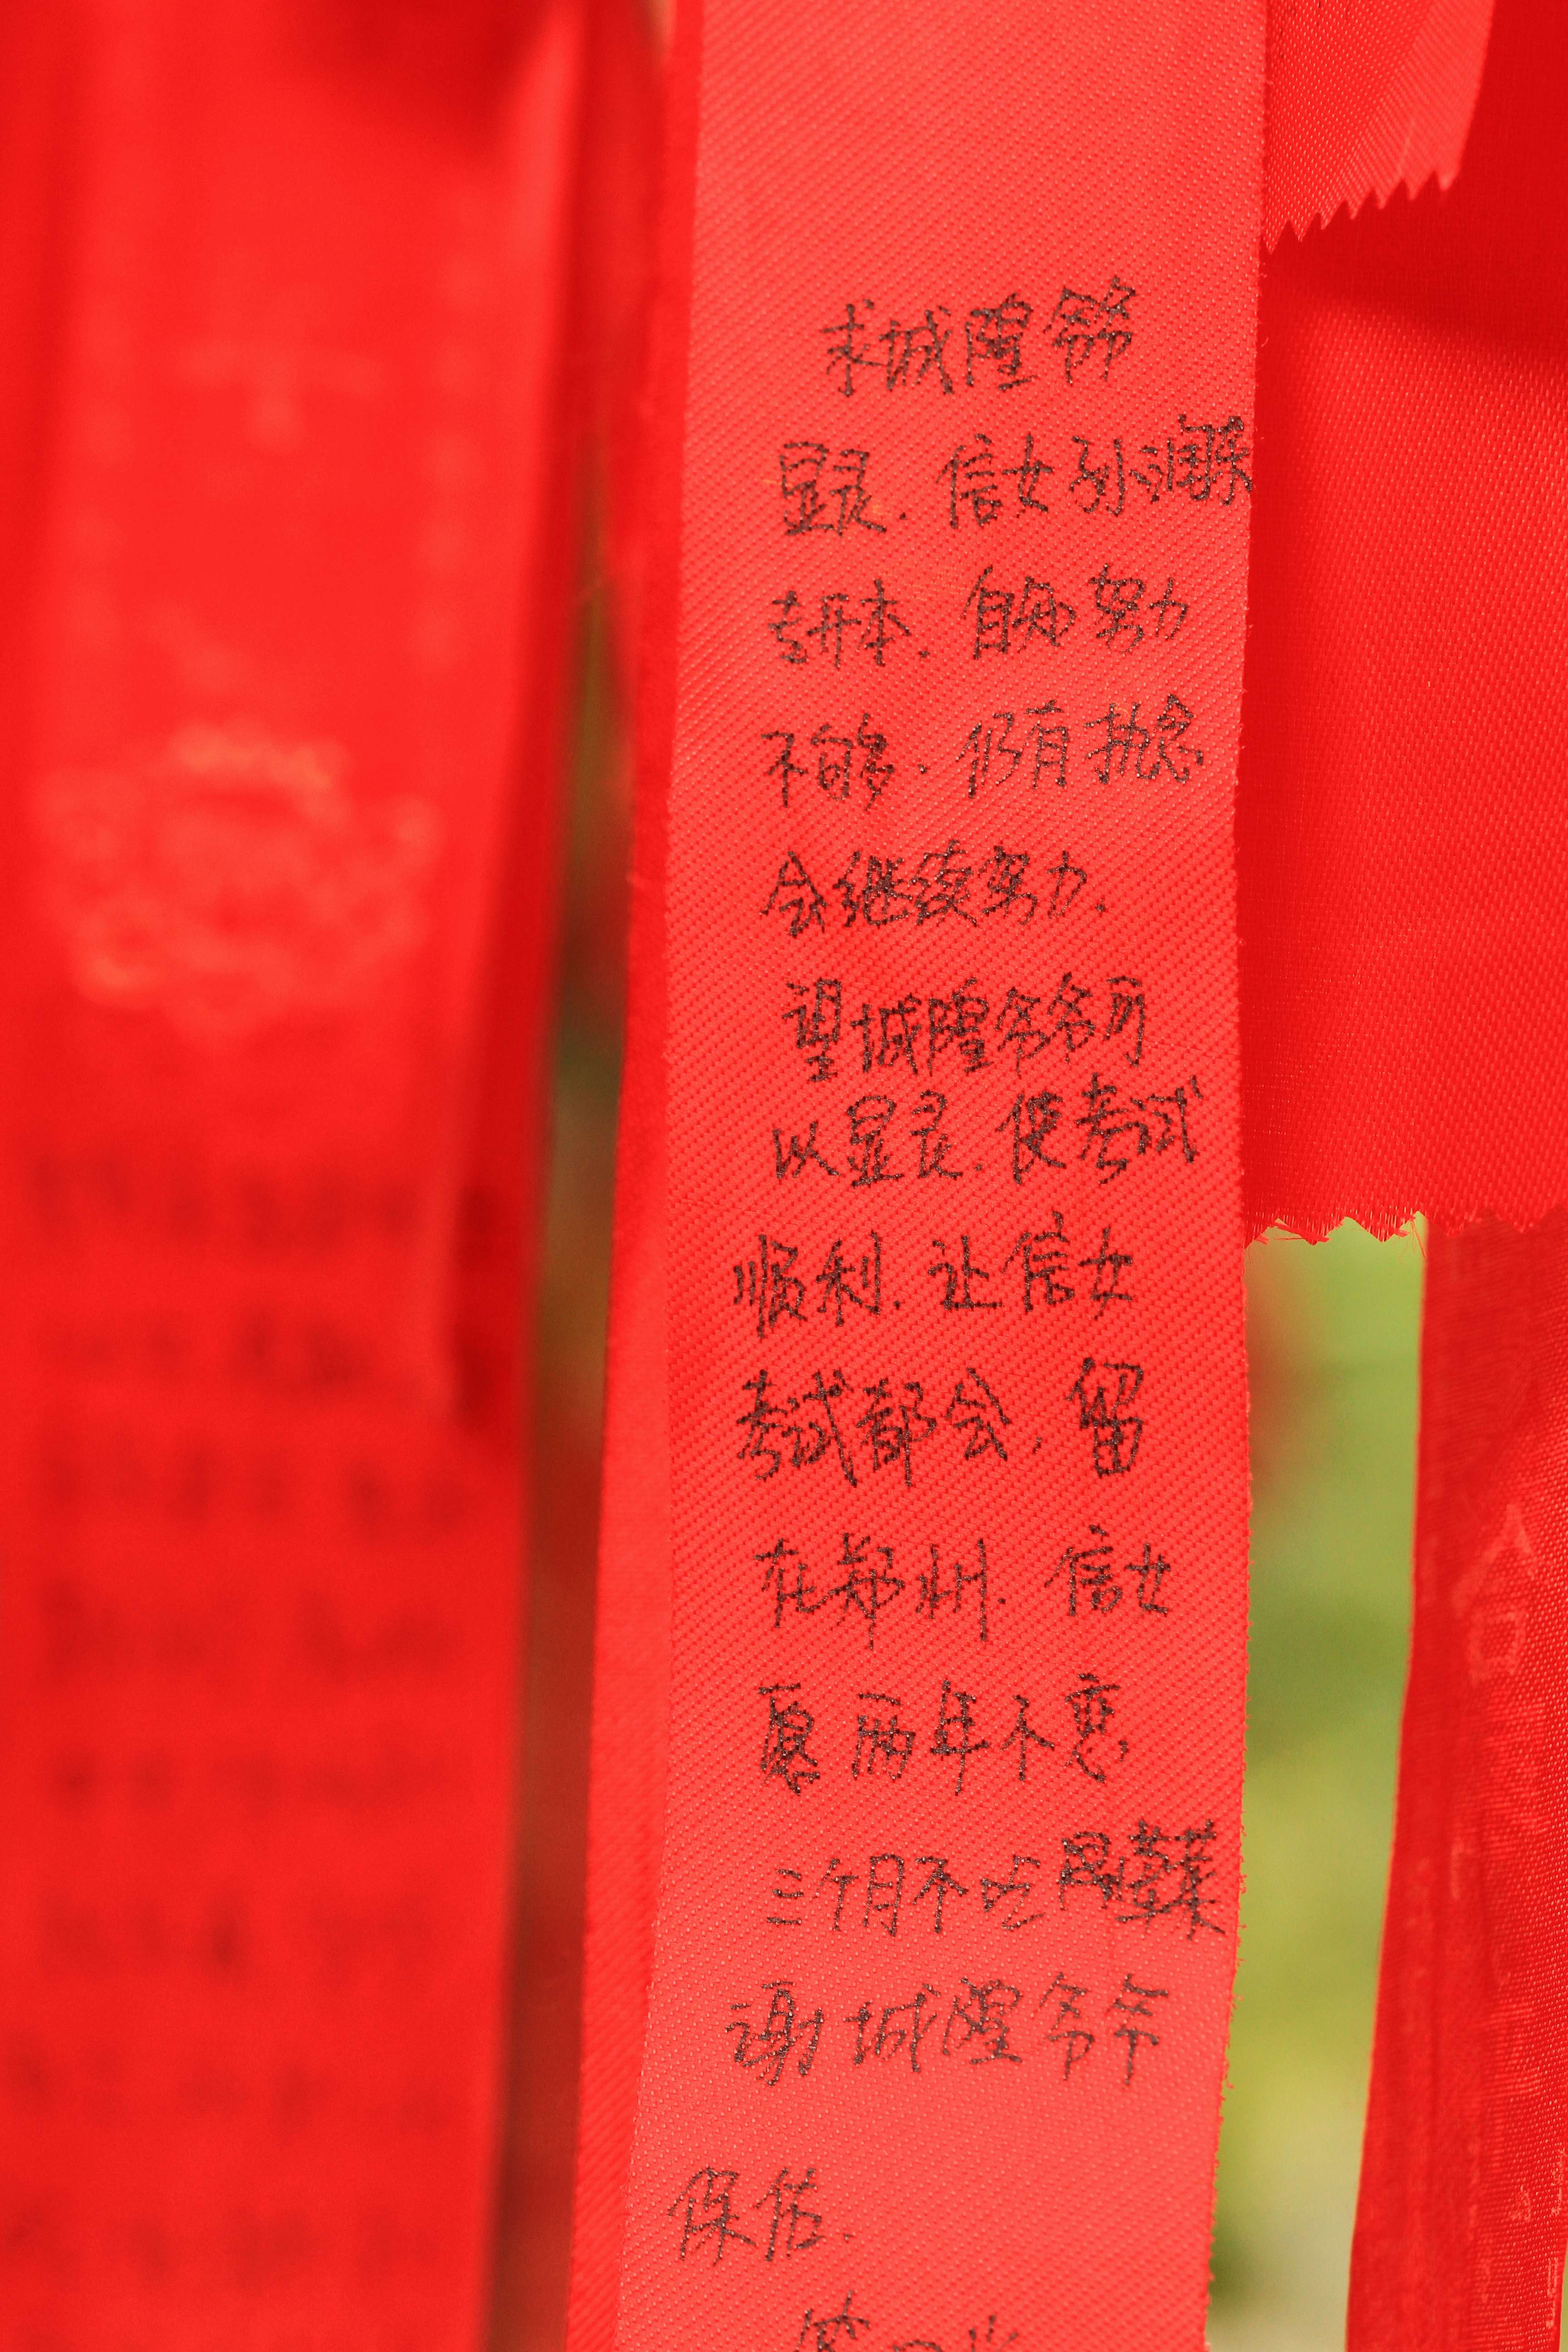 求城隍爷爷
显灵. 信女孙润琛
专升本. 自知努力
不够. 仍有执念
会继续努力.
望城隍爷爷可
以显灵. 使考试
顺利. 让信女
考试都会. 留
在郑州. 信女
愿两年不恋
三个月不吃荤菜
谢城隍爷爷
保佑.